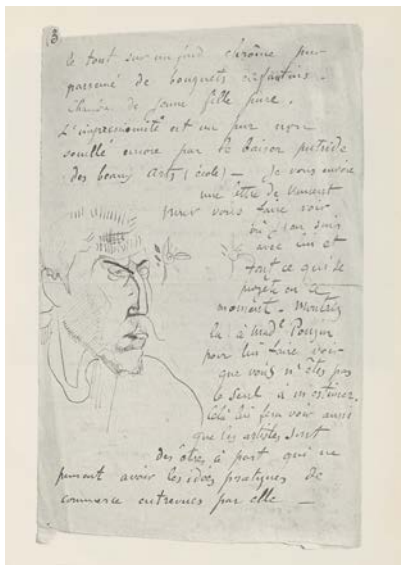 3
le tout sur un fond chrôme pur
parsemé de bouquets enfantins.
Chambre de jeune fille pure.
L'impressioniste est un pur non
souillé encore par le baiser putride
des beaux arts (école) — Je vous envoie
une lettre de Vincent
pour vous faire voir
où j'en suis
avec lui et
tout ce qui se
projete en ce
moment. Montrez
la à Made
pour lui faire voir
que vous n'êtes pas
le seul à m'estimer.
Celà lui fera voir aussi
que les artistes sont
des êtres à part qui ne
peuvent avoir les idées pratiques de
commerce entrevues par elle —